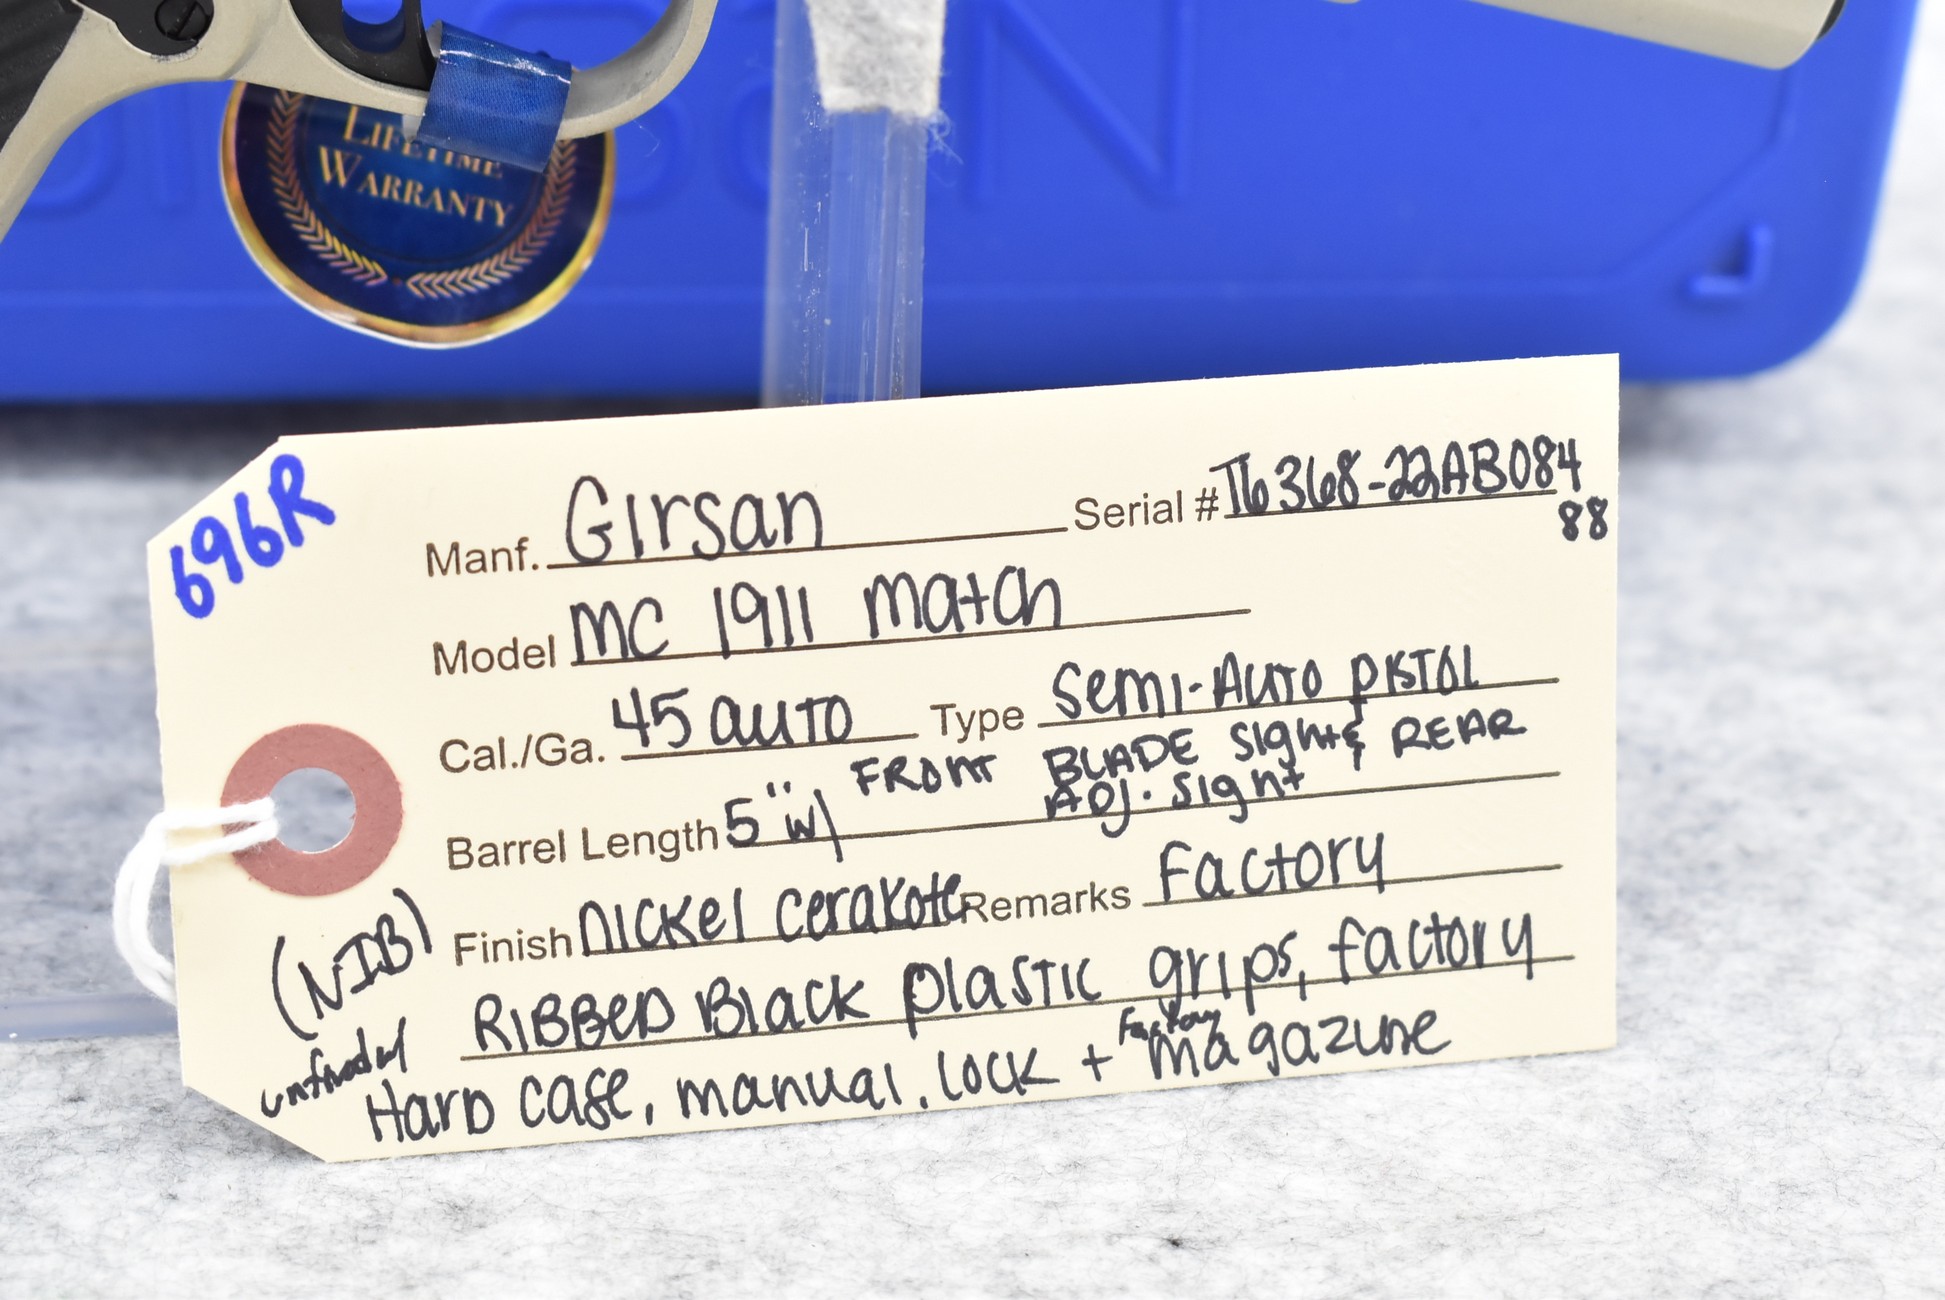 LIFETIME
WARRANTY
696R
Manf. Girsan Serial # T6368-22AB084
88
Model MC 1911 Match
Cal./Ga. 45 auto Type Semi-Auto Pistol
Barrel Length 5" w/ FRONT BLADE sight & REAR
ADJ. sight
Finish Nickel Cerakote Remarks Factory
(NIB)
unfired
RIBBED Black plastic grips, factory
Hard case, manual, lock + Factory magazine